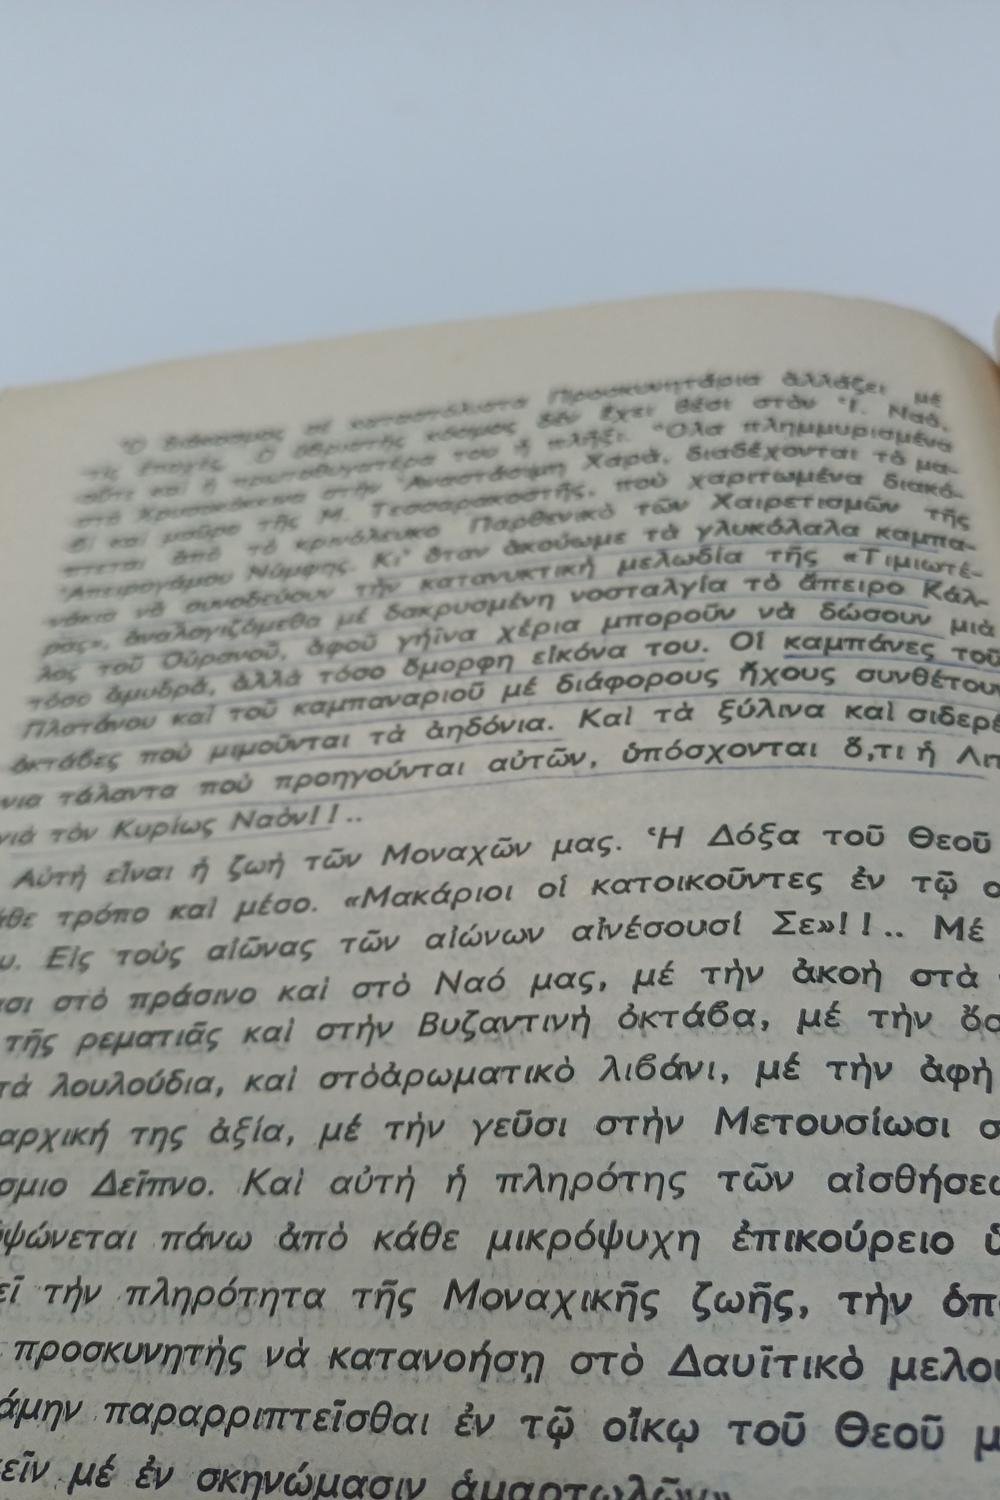 Ὁ διάκοσμος σέ κατασπόλιστα Προσκυνητάρια ἀλλάζει μέ
τίς ἐποχές. Ὁ ὑβριστής κόσμος δέν ἔχει θέσι στόν Ἱ. Ναό,
οὔτε καί ἡ πρωτοθυγατέρα του ἡ πλῆξι. Ὅλα πλημμυρισμένα
στό Χρυσοκόκκινο στήν Ἀναστάσιμη Χαρά, διαδέχονται τό μα-
βί καί μαῦρο τῆς Μ. Τεσσαρακοστῆς, πού χαριτωμένα διακό-
πτεται ἀπό τό κρινόλευκο Παρθενικό τῶν Χαιρετισμῶν τῆς
Ἀπειρογάμου Νύμφης. Κι' ὅταν ἀκούωμε τά γλυκόλαλα καμπα-
νάκια νά συνοδεύουν τήν κατανυκτική μελωδία τῆς «Τιμιωτέ-
ρας», ἀναλογιζόμεθα μέ δακρυσμένη νοσταλγία τό ἄπειρο Κάλ-
λος τοῦ Οὐρανοῦ, ἀφοῦ γήϊνα χέρια μποροῦν νά δώσουν μιά
τόσο ἀμυδρά, ἀλλά τόσο ὄμορφη εἰκόνα του. Οἱ καμπάνες τοῦ
Πλατάνου καί τοῦ καμπαναριοῦ μέ διάφορους ἤχους συνθέτουν
ὀκτάβες πού μιμοῦνται τά ἀηδόνια. Καί τά ξύλινα καί σιδερέ
νια τάλαντα πού προηγούνται αὐτῶν, ὑπόσχονται ὅ,τι ἡ Λιτ
γιά τόν Κυρίως Ναόν!!..
Αὐτή εἶναι ἡ ζωή τῶν Μοναχῶν μας. Ἡ Δόξα τοῦ Θεοῦ
άθε τρόπο καί μέσο. «Μακάριοι οἱ κατοικοῦντες ἐν τῷ ο
υ. Εἰς τούς αἰῶνας τῶν αἰώνων αἰνέσουσί Σε»!!.. Μέ
ασι στό πράσινο καί στό Ναό μας, μέ τήν ἀκοή στά
τῆς ρεματιᾶς καί στήν Βυζαντινή ὀκτάβα, μέ τήν ὄσ
τά λουλούδια, καί στόἀρωματικό λιβάνι, μέ τήν ἀφή
αρχική της ἀξία, μέ τήν γεῦσι στήν Μετουσίωσι σ
σμιο Δεῖπνο. Καί αὐτή ἡ πληρότης τῶν αἰσθήσεω
ὑψώνεται πάνω ἀπό κάθε μικρόψυχη ἐπικούρειο ὕ
εῖ τήν πληρότητα τῆς Μοναχικῆς ζωῆς, τήν ὁπ
προσκυνητής νά κατανοήση στό Δαυϊτικό μελου
άμην παραρριπτεῖσθαι ἐν τῷ οἴκῳ τοῦ Θεοῦ μ
εῖν μέ ἐν σκηνώμασιν ἁμαρτωλῶν»